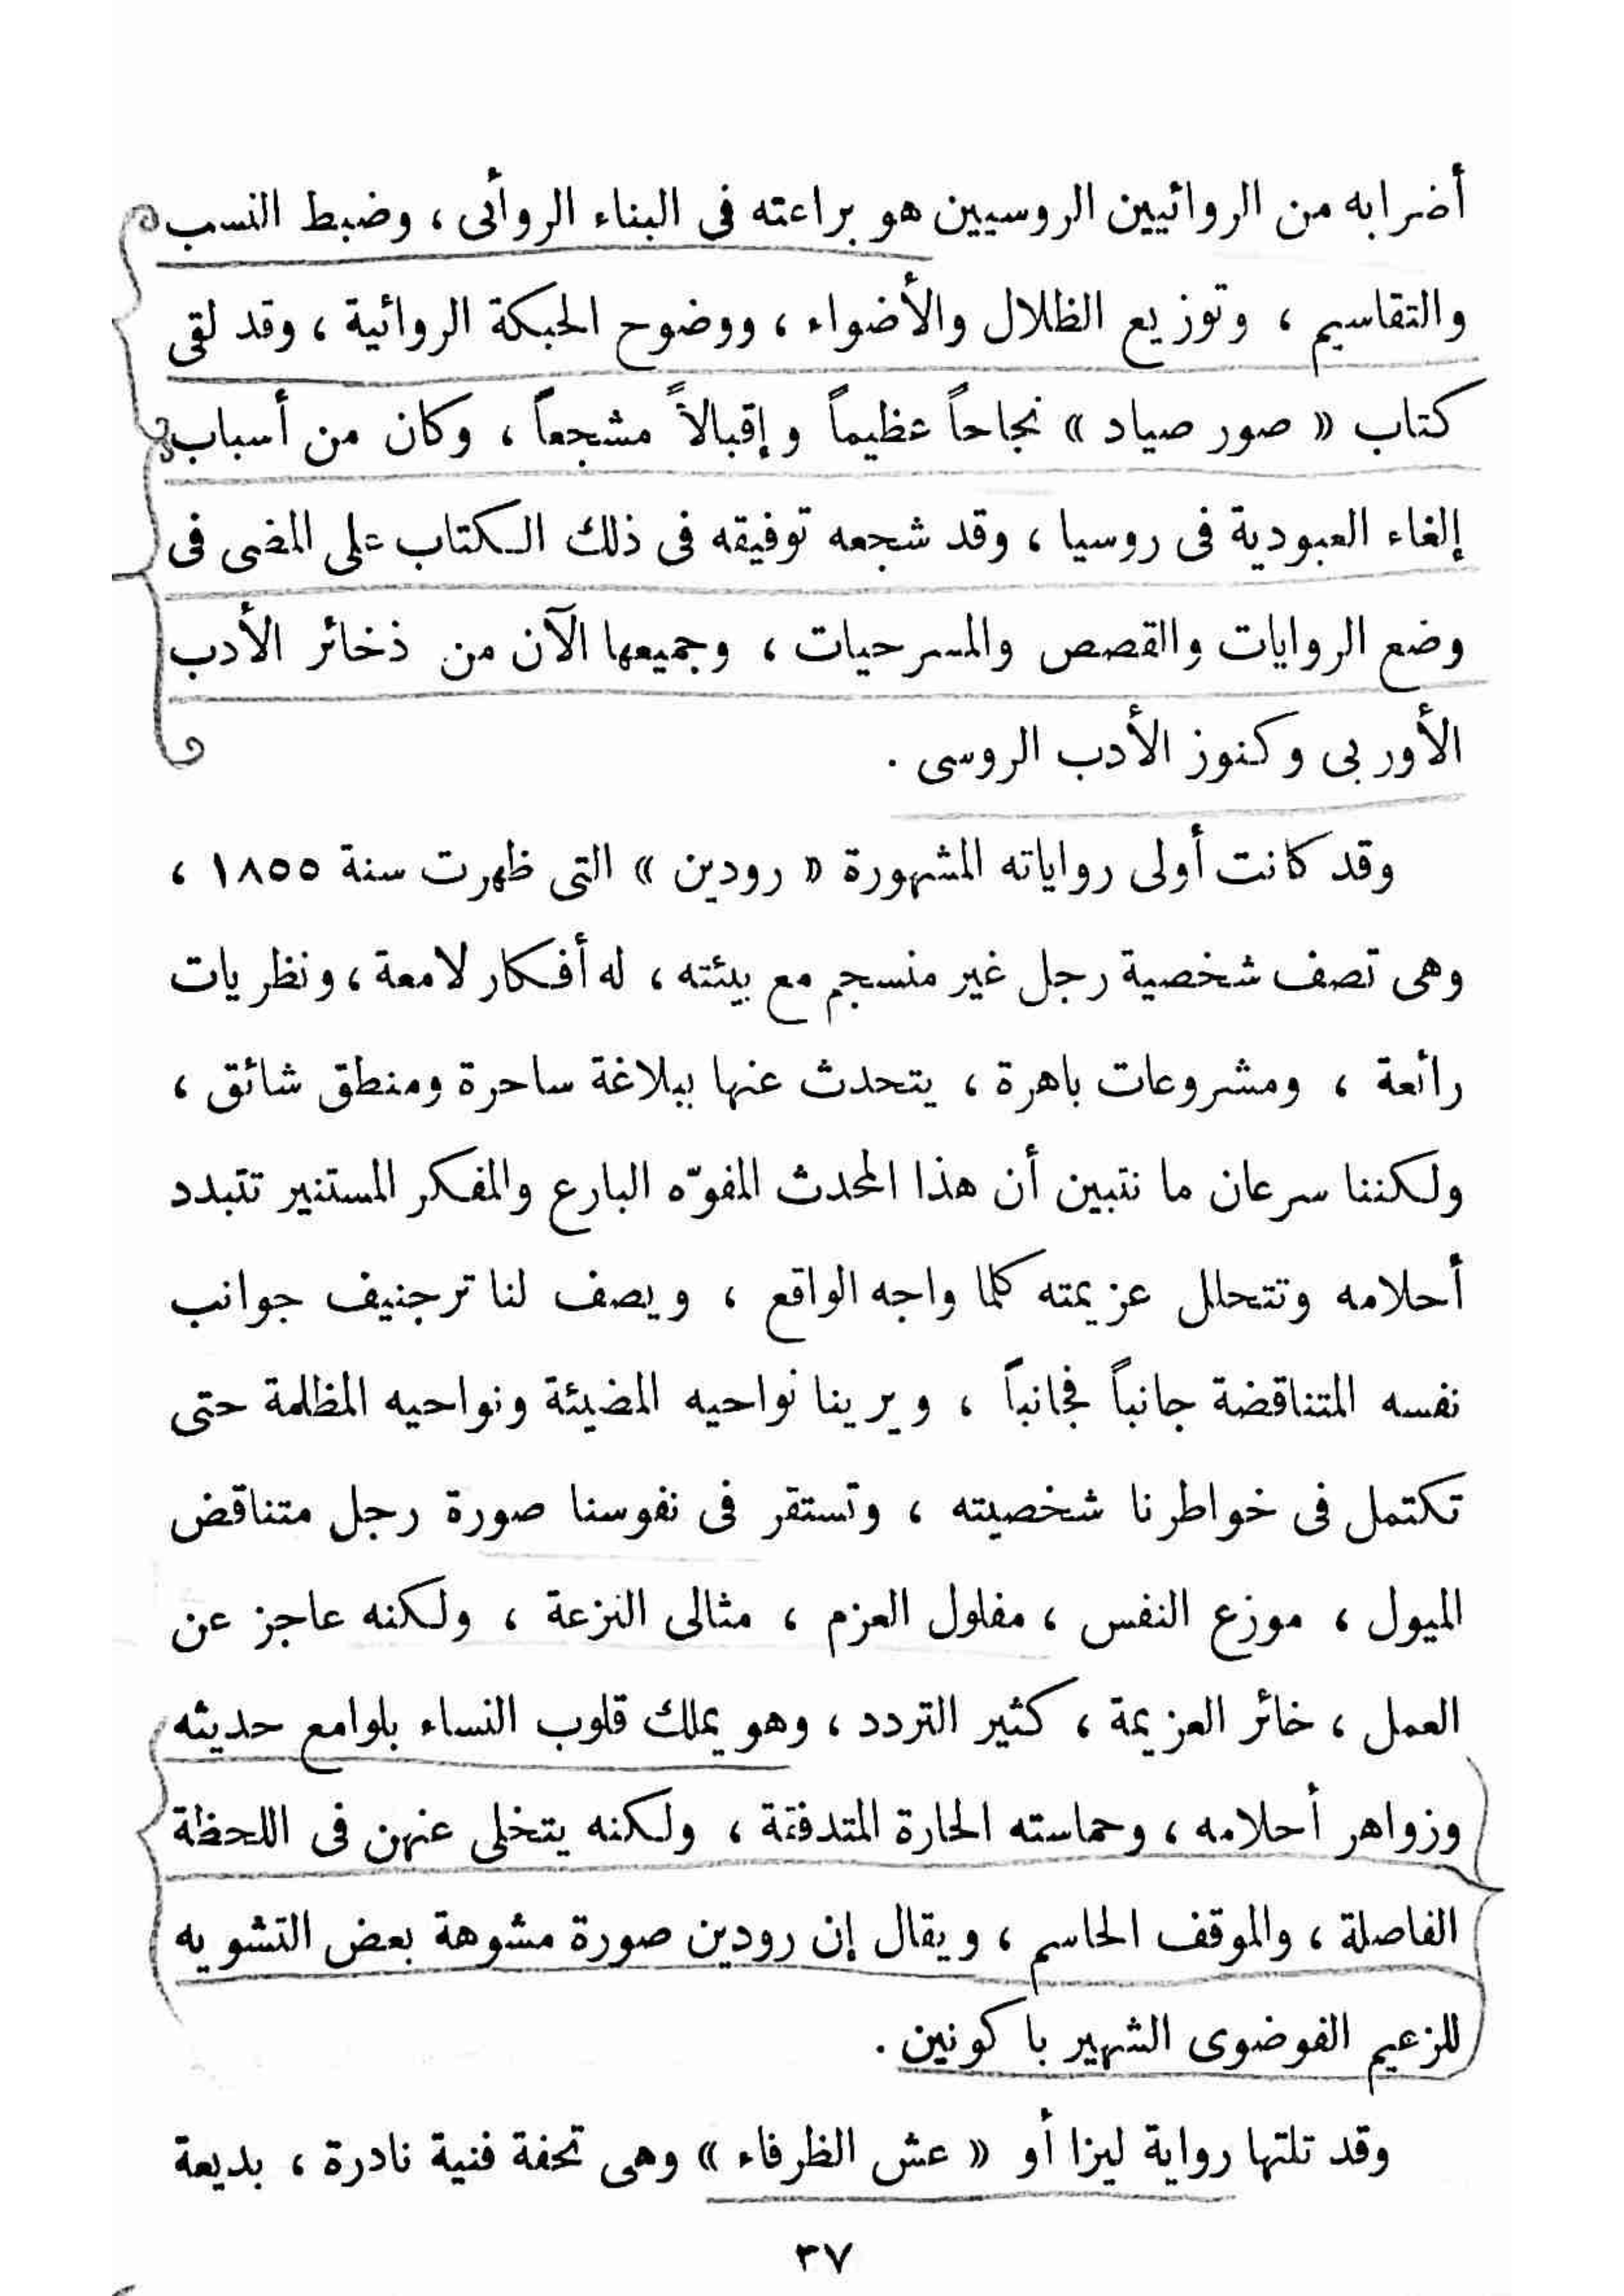 أضرابه من الروائيين الروسيين هو براعته فى البناء الروأئى ، وضبط النسب
والتقاسيم ، وتوزيع الظلال والأضواء ، ووضوح الحبكة الروائية ، وقد لقى
كتاب « صور صياد » نجاحاً عظيماً وإقبالاً مشجعاً ، وكان من أسباب
إلغاء العبودية فى روسيا ، وقد شجعه توفيقه فى ذلك الكتاب على المضى فى
وضع الروايات والقصص والمسرحيات ، وجميعها الآن من ذخائر الأدب
الأوربى وكنوز الأدب الروسى .
وقد كانت أولى رواياته المشهورة « رودين » التى ظهرت سنة ١٨٥٥ ،
وهى تصف شخصية رجل غير منسجم مع بيئته ، له أفكار لامعة ، ونظريات
رائعة ، ومشروعات باهرة ، يتحدث عنها ببلاغة ساحرة ومنطق شائق ،
ولكننا سرعان ما نتبين أن هذا المحدث المفوّه البارع والمفكر المستنير تتبدد
أحلامه وتتحلل عزيمته كلما واجه الواقع ، ويصف لنا ترجنيف جوانب
نفسه المتناقضة جانباً فجانباً ، ويرينا نواحيه المضيئة ونواحيه المظلمة حتى
تكتمل فى خواطرنا شخصيته ، وتستقر فى نفوسنا صورة رجل متناقض
الميول ، موزع النفس ، مفلول العزم ، مثالى النزعة ، ولكنه عاجز عن
العمل ، خائر العزيمة ، كثير التردد ، وهو يملك قلوب النساء بلوامع حديثه
وزواهر أحلامه ، وحماسته الحارة المتدفقة ، ولكنه يتخلى عنهن فى اللحظة
الفاصلة ، والموقف الحاسم ، ويقال إن رودين صورة مشوهة بعض التشويه
للزعيم الفوضوى الشهير باكونين .
وقد تلتها رواية ليزا أو « عش الظرفاء » وهى تحفة فنية نادرة ، بديعة
٣٧